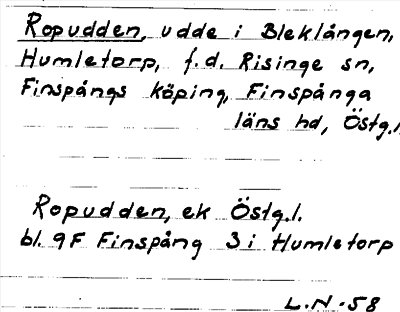 Ropudden, udde i Bleklången,
Humletorp, f.d. Risinge sn,
Finspångs köping, Finspånga
läns hd, Östg.l.
Ropudden, ek Östg.l.
bl. 9F Finspång 3i Humletorp
L.N-58